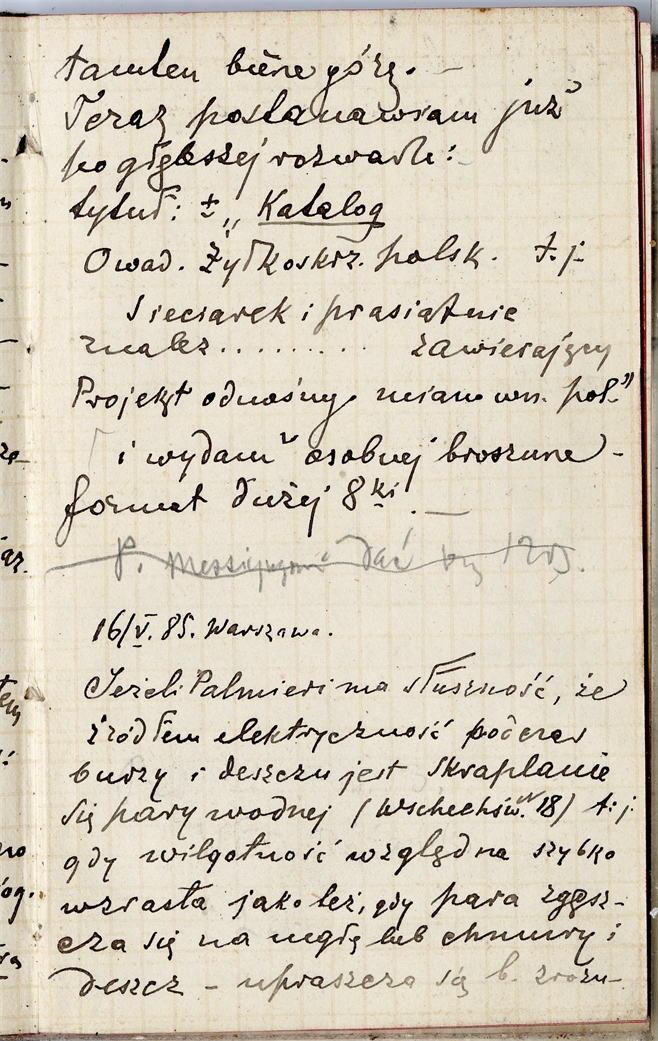 tamten bierze górę. —
Teraz postanawiam już
po głębszej rozwadze:
tytuł: ± „Katalog
Owad. Żyłkoskrz. polsk. t. j.
Sieciarek i prasiatnic
znalez......... zawierający
Projekt odnośnyc mian wn. pol."
i wydam w osobnej broszurze –
format dużej 8ki. —
P. dać 12 
16/V. 85. Warszawa.
Jeżeli Palmieri ma słuszność, że
źródłem elektryczność podczas
burzy i deszczu jest skraplanie
się pary wodnej (Wszechśw. N 18) t. j.
gdy wilgotność względna szybko
wzrasta jakoteż, gdy para zgęsz-
cza się na mgłę lub chmury i
deszcz – upraszcza się b. zrozu-